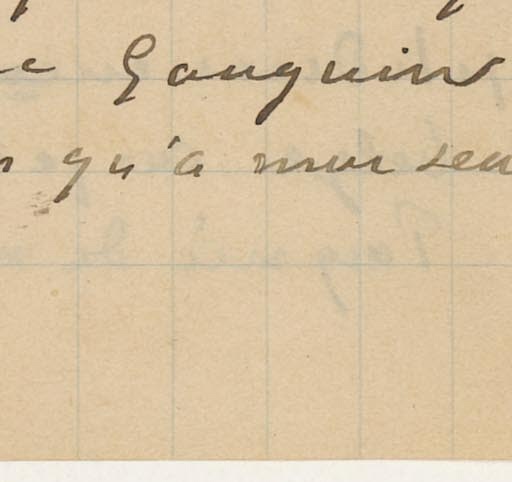 Gauguin
qu'à moi seu